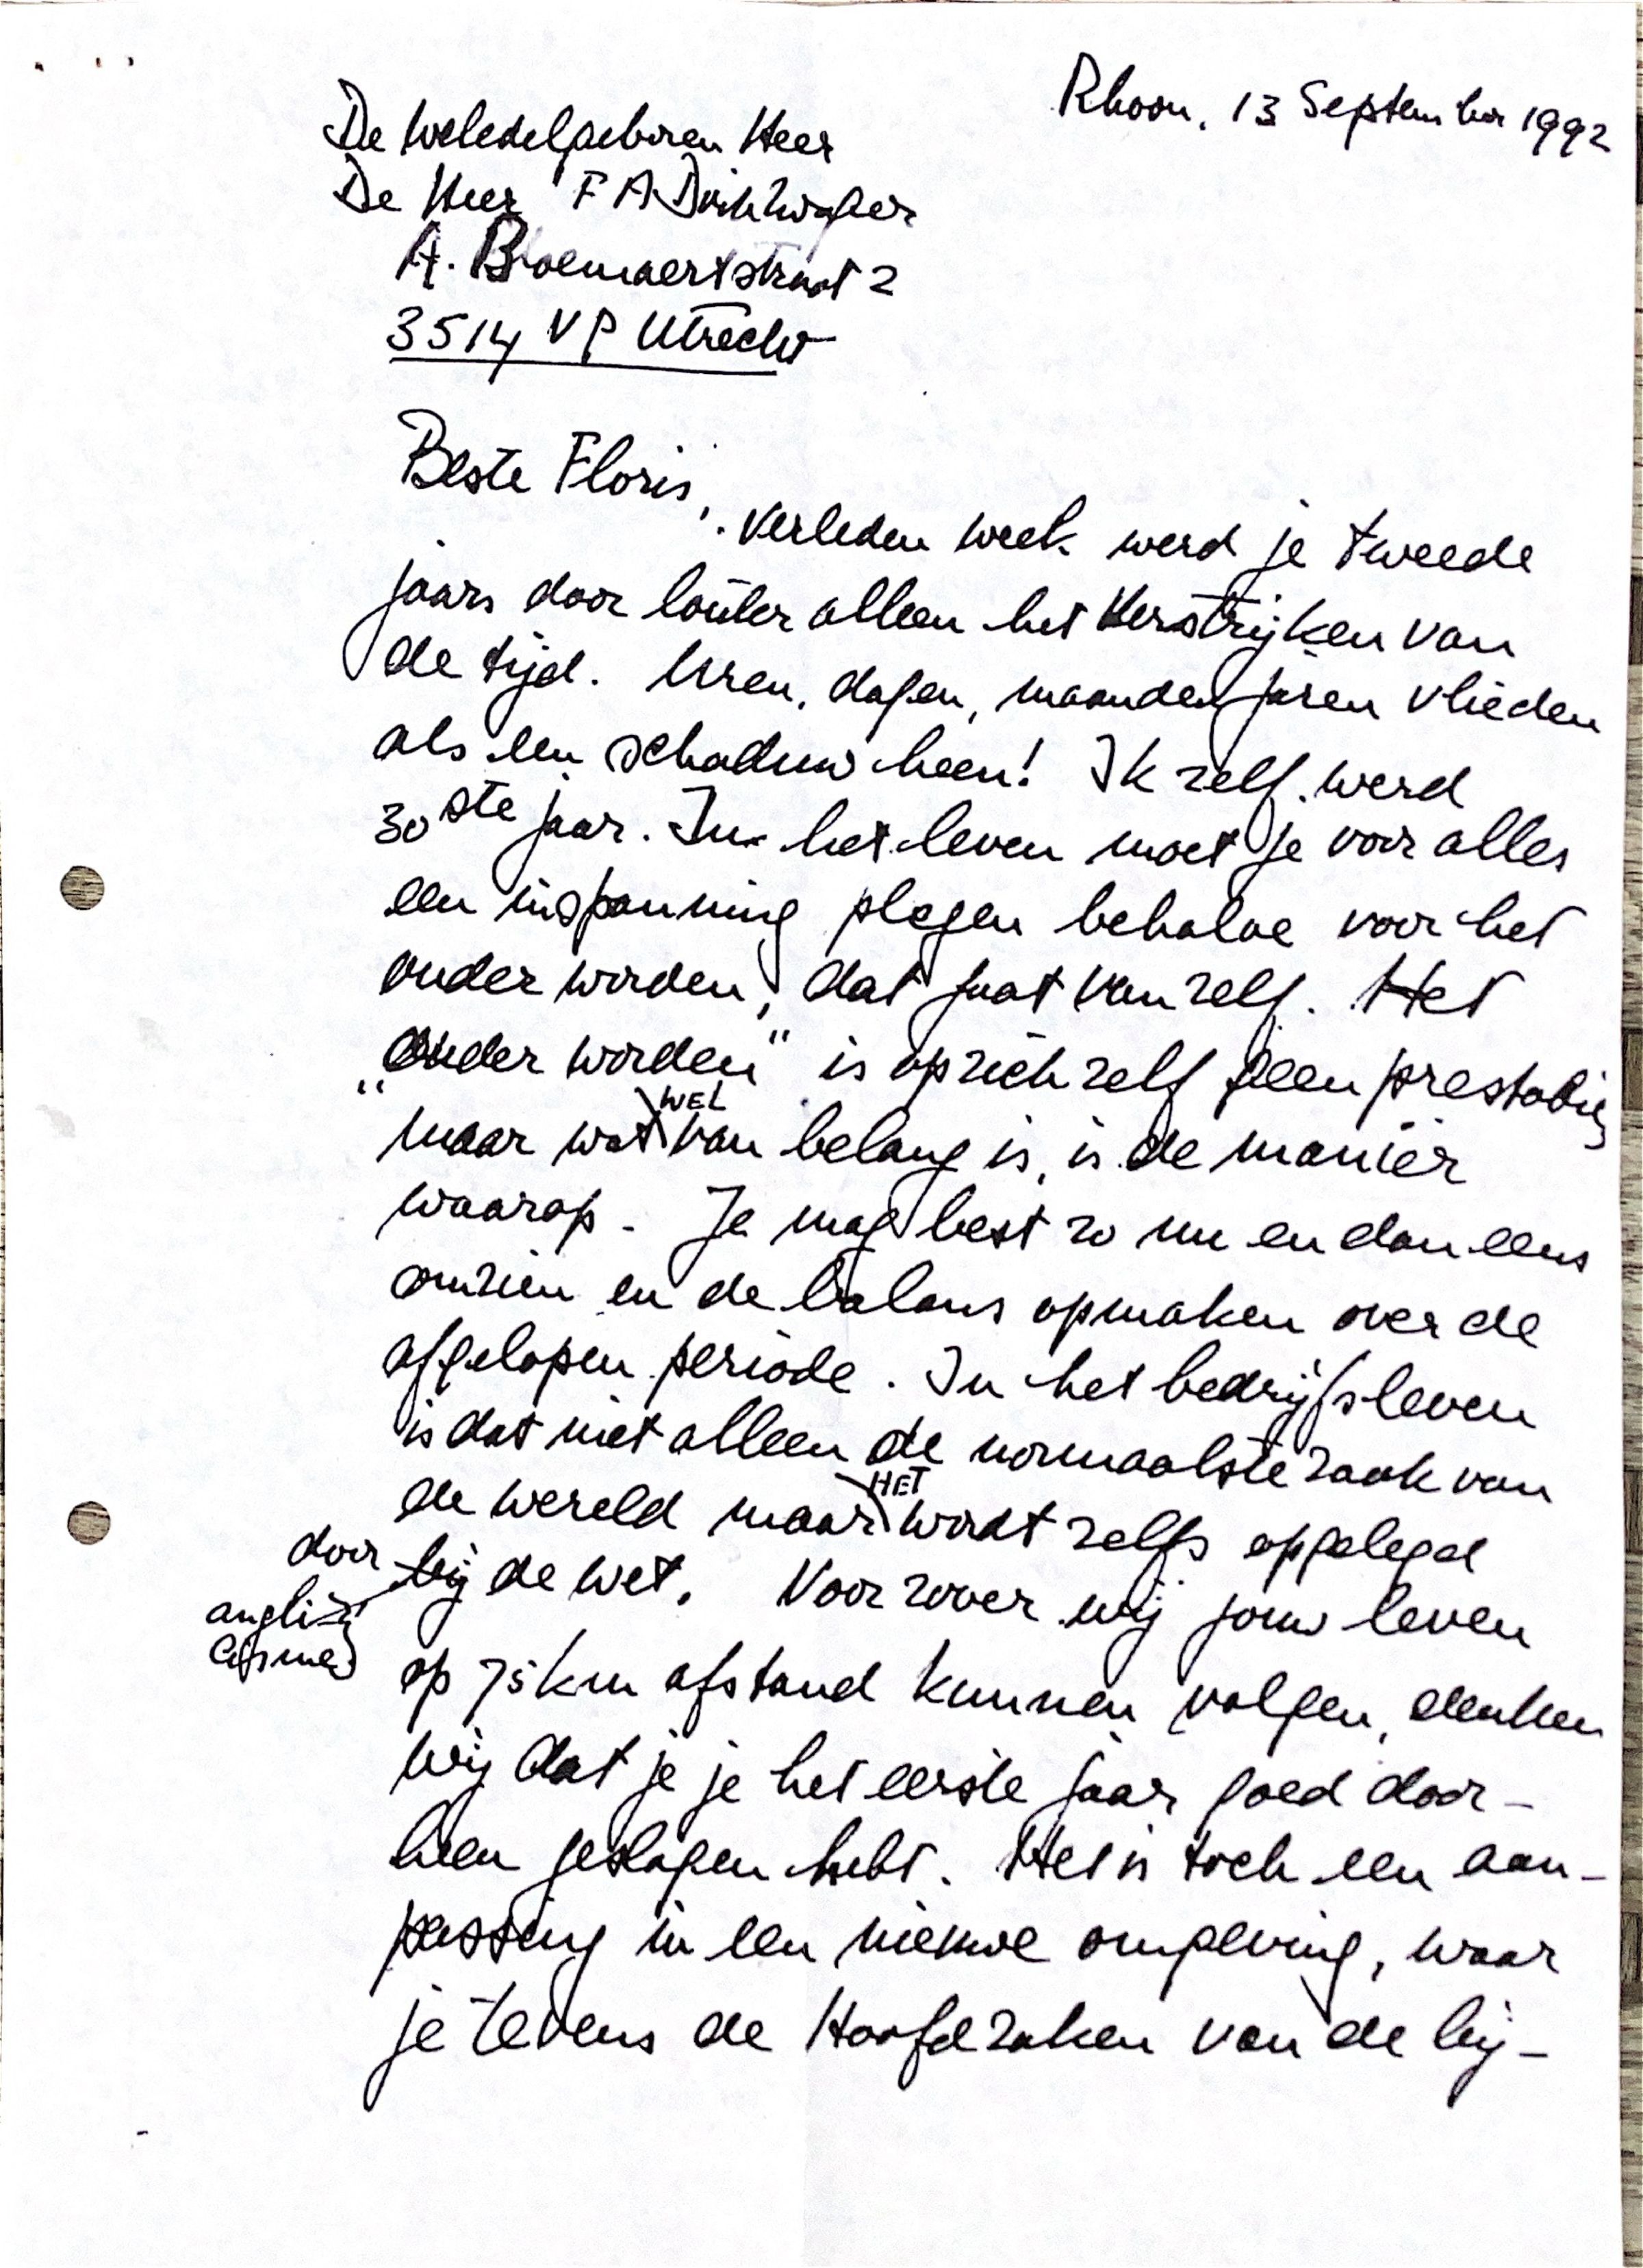 Rhoon, 13 September 1992
De Weledelgeboren Heer
De Heer F A
A. Bloemaertstraat 2
3514 VP Utrecht
Beste Floris,
Verleden week werd je tweede
jaars door louter alleen het verstrijken van
de tijd. Uren, dagen, maanden, jaren vlieden
als een schaduw heen! Ik zelf werd
30ste jaar. In het leven moet je voor alles
een inspanning plegen behalve voor het
ouder worden, dat gaat van zelf. Het
"ouder worden" is op zich zelf geen prestatie,
maar wat WEL van belang is, is de manier
waarop. Je mag best zo nu en dan eens
omzien en de balans opmaken over de
afgelopen periode. In het bedrijfsleven
is dat niet alleen de normaalste zaak van
de wereld maar HET wordt zelfs opgelegd
door bij de wet. Voor zover wij jouw leven
angli-
cisme
op 75 km afstand kunnen volgen, denken
wij dat je je het eerste jaar goed door-
heen geslagen hebt. Het is toch een aan-
passing in een nieuwe omgeving, waar
je tevens de Hoofdzaken van de bij-